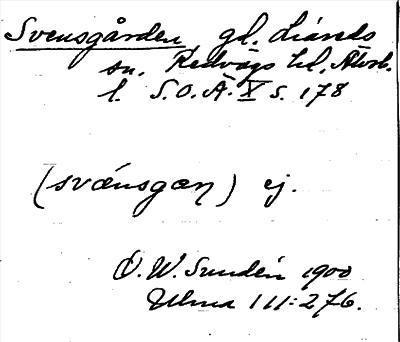 Svensgården gl. Liareds
sn. Redvägs hd. Älvsb.
l. S.O.Ä. X s. 178
(svænsgæn) ej.
D. W. Sundén 1900
Ulma 111:276.